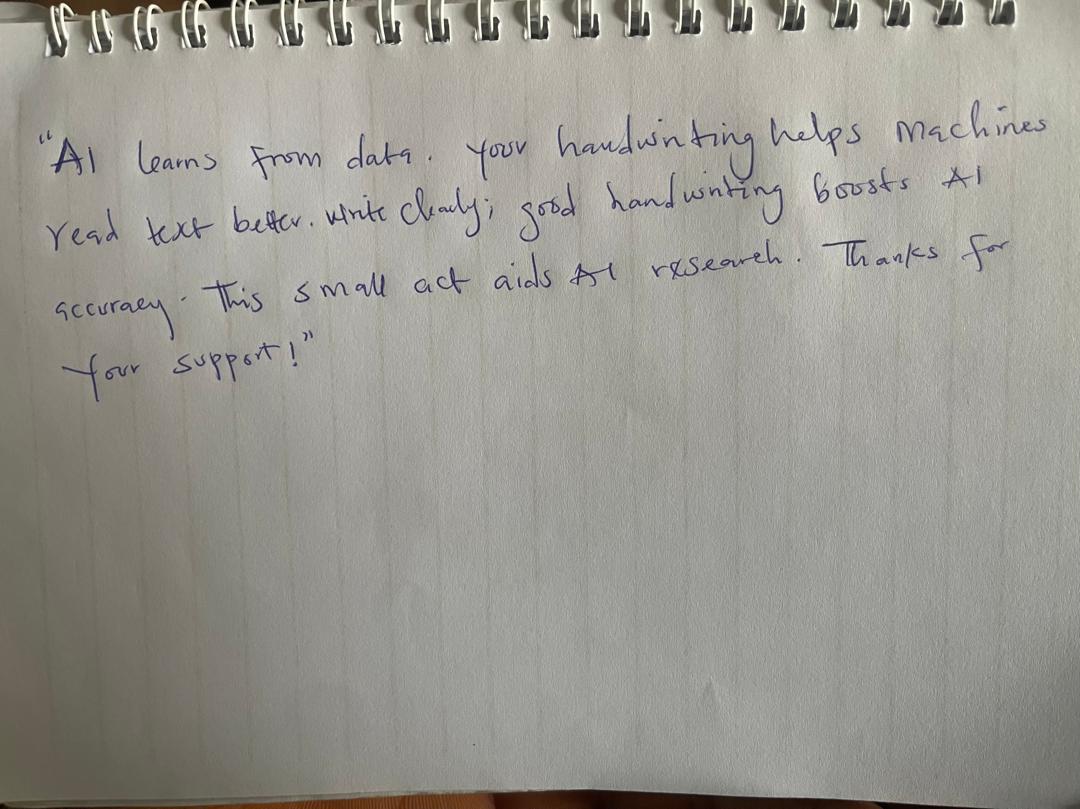 "AI learns from data. Your handwriting helps machines
read text better. Write clearly; good handwriting boosts AI
accuracy. This small act aids AI research. Thanks for
Your support!"